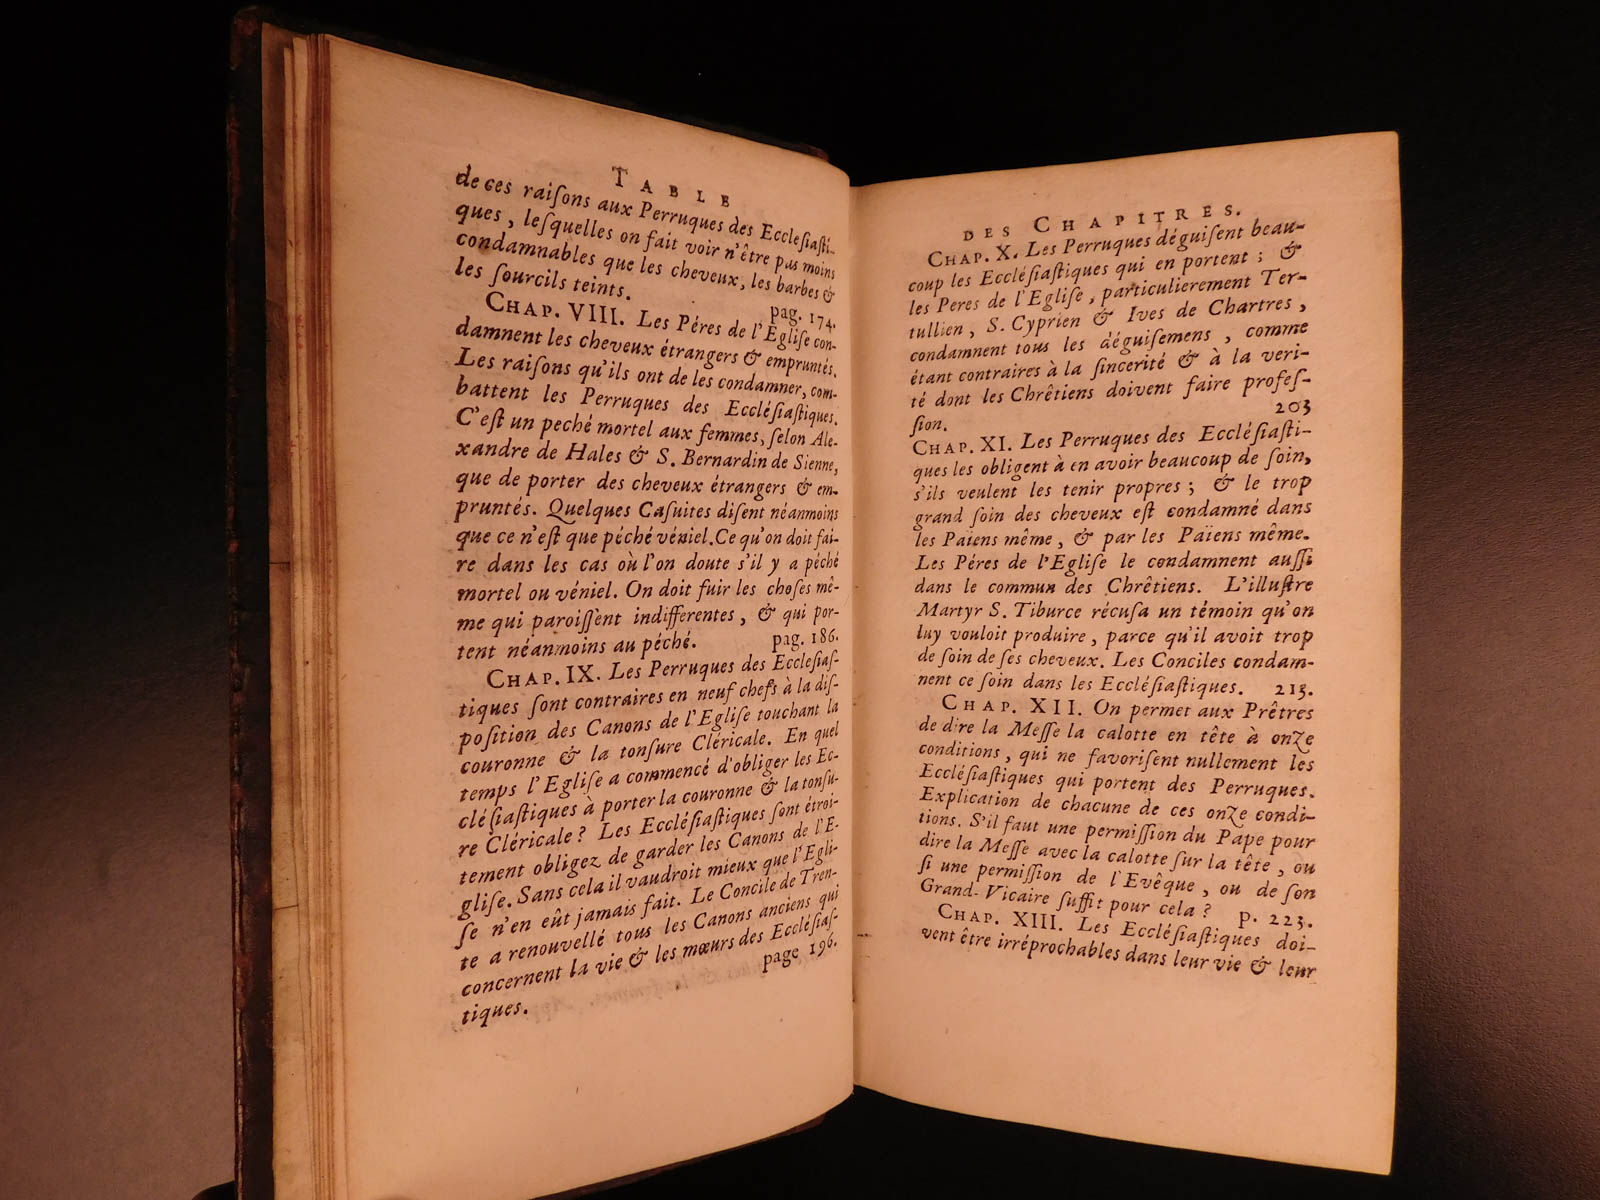 TABLE
de ces raiſons aux Perruques des Eccleſiaſti-
ques, leſquelles on fait voir n'être pas moins
condamnables que les cheveux, les barbes &
les ſourcils teints. pag. 174.
CHAP. VIII. Les Péres de l'Égliſe con-
damnent les cheveux étrangers & empruntés.
Les raiſons qu'ils ont de les condamner, com-
battent les Perruques des Eccléſiaſtiques.
C'eſt un peché mortel aux femmes, ſelon Ale-
xandre de Hales & S. Bernardin de Sienne,
que de porter des cheveux étrangers & em-
pruntés. Quelques Caſuites diſent néanmoins
que ce n'eſt que péché véniel. Ce qu'on doit fai-
re dans les cas où l'on doute s'il y a péché
mortel ou véniel. On doit fuir les choſes mê-
me qui paroiſſent indifferentes, & qui por-
tent néanmoins au péché. pag. 186.
CHAP. IX. Les Perruques des Eccleſiaſ-
tiques ſont contraires en neuf chefs à la diſ-
poſition des Canons de l'Egliſe touchant la
couronne & la tonſure Cléricale. En quel
temps l'Egliſe a commencé d'obliger les Ec-
cléſiaſtiques à porter la couronne & la tonſu-
re Cléricale? Les Eccléſiaſtiques ſont étroi-
tement obligez de garder les Canons de l'E-
gliſe. Sans cela il vaudroit mieux que l'Egli-
ſe n'en eût jamais fait. Le Concile de Tren-
te a renouvellé tous les Canons anciens qui
concernent la vie & les mœurs des Eccléſiaſ-
tiques. page 196.
DES CHAPITRES.
CHAP. X. Les Perruques déguiſent beau-
coup les Eccléſiaſtiques qui en portent; &
les Peres de l'Egliſe, particulierement Ter-
tullien, S. Cyprien & Ives de Chartres,
condamnent tous les déguiſemens, comme
étant contraires à la ſincerité & à la veri-
té dont les Chrêtiens doivent faire profeſ-
ſion. 203
CHAP. XI. Les Perruques des Eccléſiaſti-
ques les obligent à en avoir beaucoup de ſoin,
s'ils veulent les tenir propres; & le trop
grand ſoin des cheveux eſt condamné dans
les Païens même, & par les Païens même.
Les Péres de l'Egliſe le condamnent auſſi
dans le commun des Chrêtiens. L'illuſtre
Martyr S. Tiburce récuſa un témoin qu'on
luy vouloit produire, parce qu'il avoit trop
de ſoin de ſes cheveux. Les Conciles condam-
nent ce ſoin dans les Eccléſiaſtiques. 213.
CHAP. XII. On permet aux Prêtres
de dire la Meſſe la calotte en tête à onze
conditions, qui ne favoriſent nullement les
Eccléſiaſtiques qui portent des Perruques.
Explication de chacune de ces onze condi-
tions. S'il faut une permiſſion du Pape pour
dire la Meſſe avec la calotte ſur la tête, ou
ſi une permiſſion de l'Evêque, ou de ſon
Grand-Vicaire ſuffit pour cela? p. 223.
CHAP. XIII. Les Eccléſiaſtiques doi-
vent être irréprochables dans leur vie & leur